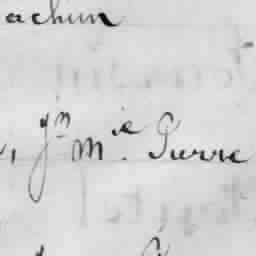 achun
, Jn Mie Pierre